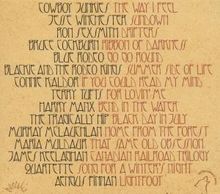 COWBOY JUNKIES THE WAY I FEEL
JESSE WINCHESTER SUNDOWN
RON SEXSMITH DRIFTERS
BRUCE COCKBURN RIBBON OF DARKNESS
BLUE RODEO GO GO ROUND
BLACKIE AND THE RODEO KINGS SUMMER SIDE OF LIFE
CONNIE KALDOR IF YOU COULD READ MY MIND
TERRY TUFTS FOR LOVIN' ME
HARRY MANX BEND IN THE WATER
THE TRAGICALLY HIP BLACK DAY IN JULY
MURRAY MCLAUCHLAN HOME FROM THE FOREST
MARIA MULDAUR THAT SAME OLD OBSESSION
JAMES KEELAGHAN CANADIAN RAILROAD TRILOGY
QUARTETTE SONG FOR A WINTER'S NIGHT
AENGUS FINNAN LIGHTFOOT